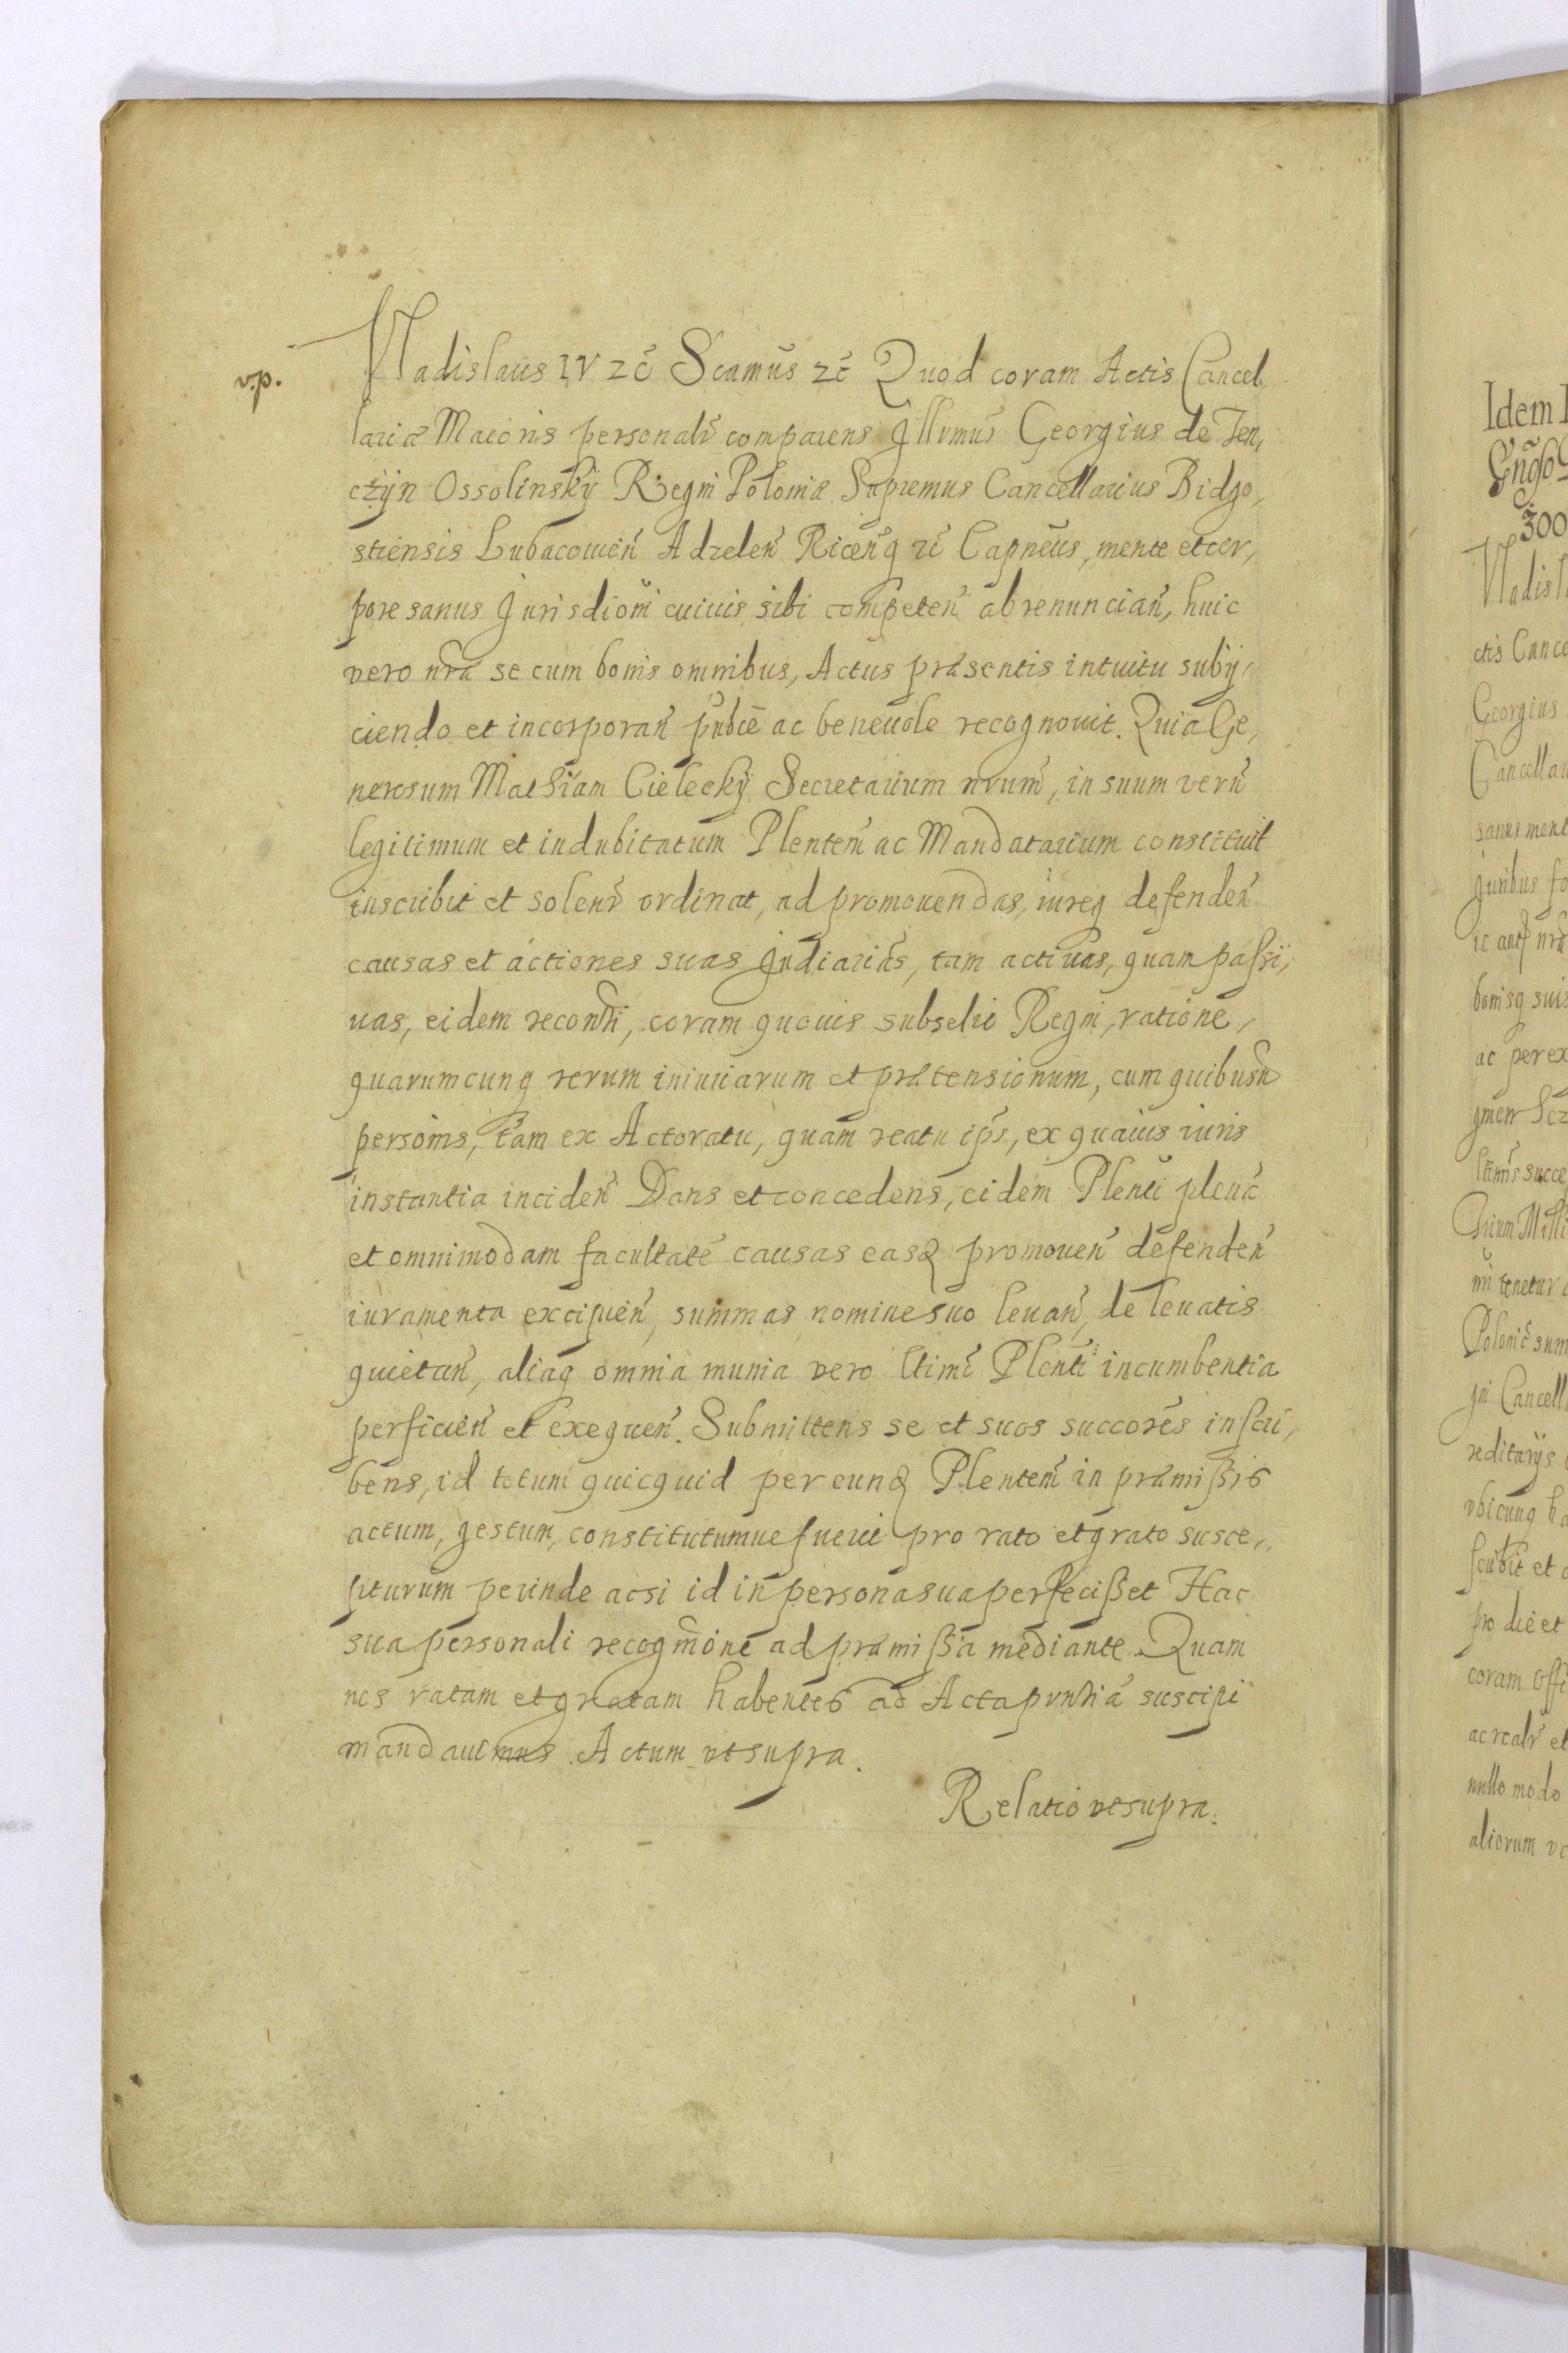 v.p.
Vladislaus IV zc̃ Scamũs zc̃ Quod coram Actis Cancel
lariæ Maioris personalr̃ comparens Jllrmus̃ Georgius de Ten,
czÿn Ossolinskÿ Regni Poloniæ Supremus Cancellarius Bidgo,
stiensis Lubacouien̄ Adzelen̄ Ricen̄q zc̃ Capneũs, mente et cor,
pore sanus Jurisdiom̃ cuiuis sibi competen̄ abrenuncian̄, huic
vero nrã se cum bonis omnibus, Actus præsentis intuitu subij,
ciendo et incorporan̄ publcẽ ac beneuole recognouit. Quia Ge,
nerosum Mathiam Cieleckÿ Secretarium nrum̃, in suum verũ
legitimum et indubitatum Plentem̃ ac Mandatarium constituit
inscribit et solenr̃ ordinat, ad promouendas, iureq defenden̄
causas et actiones suas Judiarias̃, tam actiuas, quam passi,
uas, eidem reconti, coram quouis subselio Regni, ratione,
quarumcunq rerum iniuriarum et prætensionum, cum quibusũ
personis, tam ex Actoratu, quam reatu ips̃, ex quauis iuris
instantia inciden̄ Dans et concedens, eidem Plenti plenã
et omnimodam facultatẽ causas easq promouen̄ defenden̄
iuramenta excipien̄, summas nomine suo leuan̄, de leuatis
quietan̄, aliaq omnia munia vero ltimẽ Plenti incumbentia
perficien̄ et exequen̄. Submittens se et suos succorẽs inscri,
bens, id totum quicquid per eunq Plentem̃ in præmissis
actum, gestum, constitutumue fuerit pro rato et grato susce,
pturum perinde acsi id in persona sua perfecisset Hac
sua personali recogm̃one ad præmissa mediante. Quam
nos ratam et gratam habentes ad Acta prntia suscipi
mandauimus. Actum vt supra.
Relatio vt supra.
Idem
300
Vladisl
ctis Cance
Georgius
Cancellar
sanus ment
Juribus fo
bonisq suis
ac per ex
ltimis succe
tenetur
Polonic̃ sum
gni Cancell
reditarÿs
vbicunq ha
scribit et
pro die et
coram Offi
ac realr̃ et
nullo modo
aliorum vc